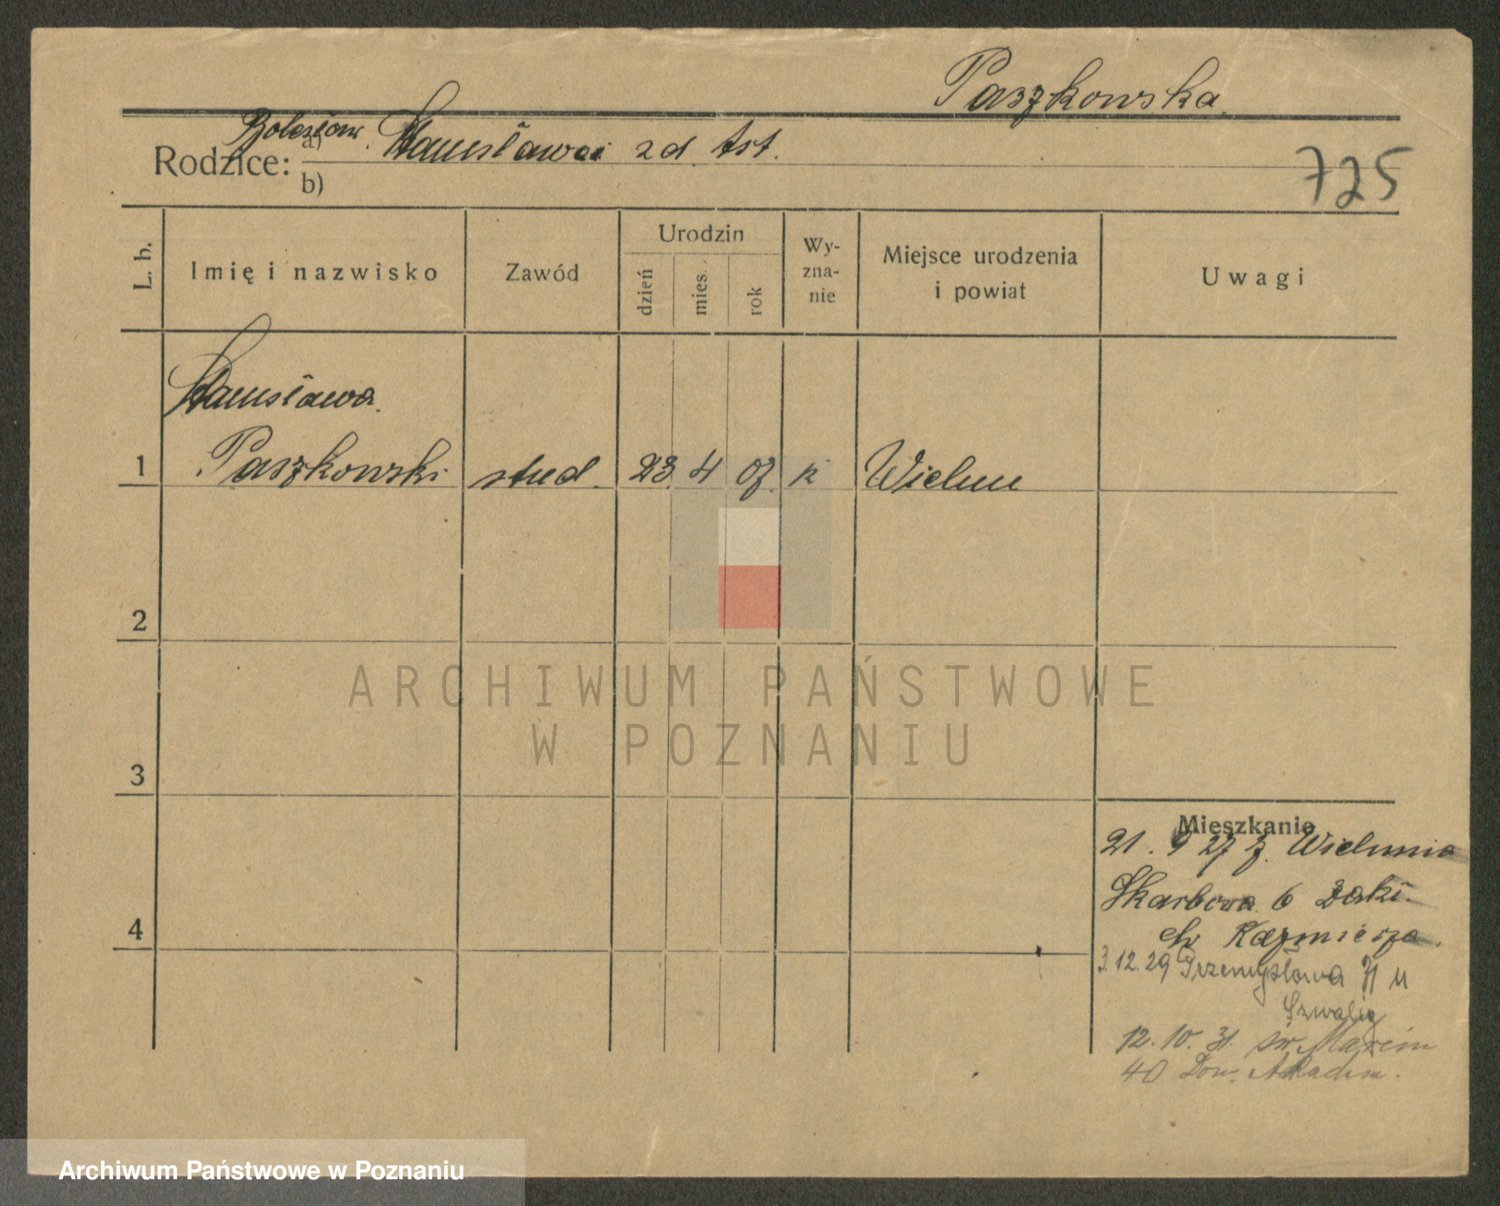 Paszkowska
Bolesław
Rodzice: a) Stanisława zd. Ast.
b)
725
L. b.
Imię i nazwisko
Zawód
Urodzin
dzień
mies.
rok
Wy-
zna-
nie
Miejsce urodzenia
i powiat
Uwagi
Stanisława
1 Paszkowski stud. 23 4 07 k Wieluń
2
ARCHIWUM PAŃSTWOWE
W POZNANIU
3
4
Mieszkanie
21. 9 27 z Wielunia
Skarbowa 6
Kazmierza
3.12.29 Przemysłowa u
12. 10. 31. św. Marcin
40 Dom. Akadem.
Archiwum Państwowe w Poznaniu